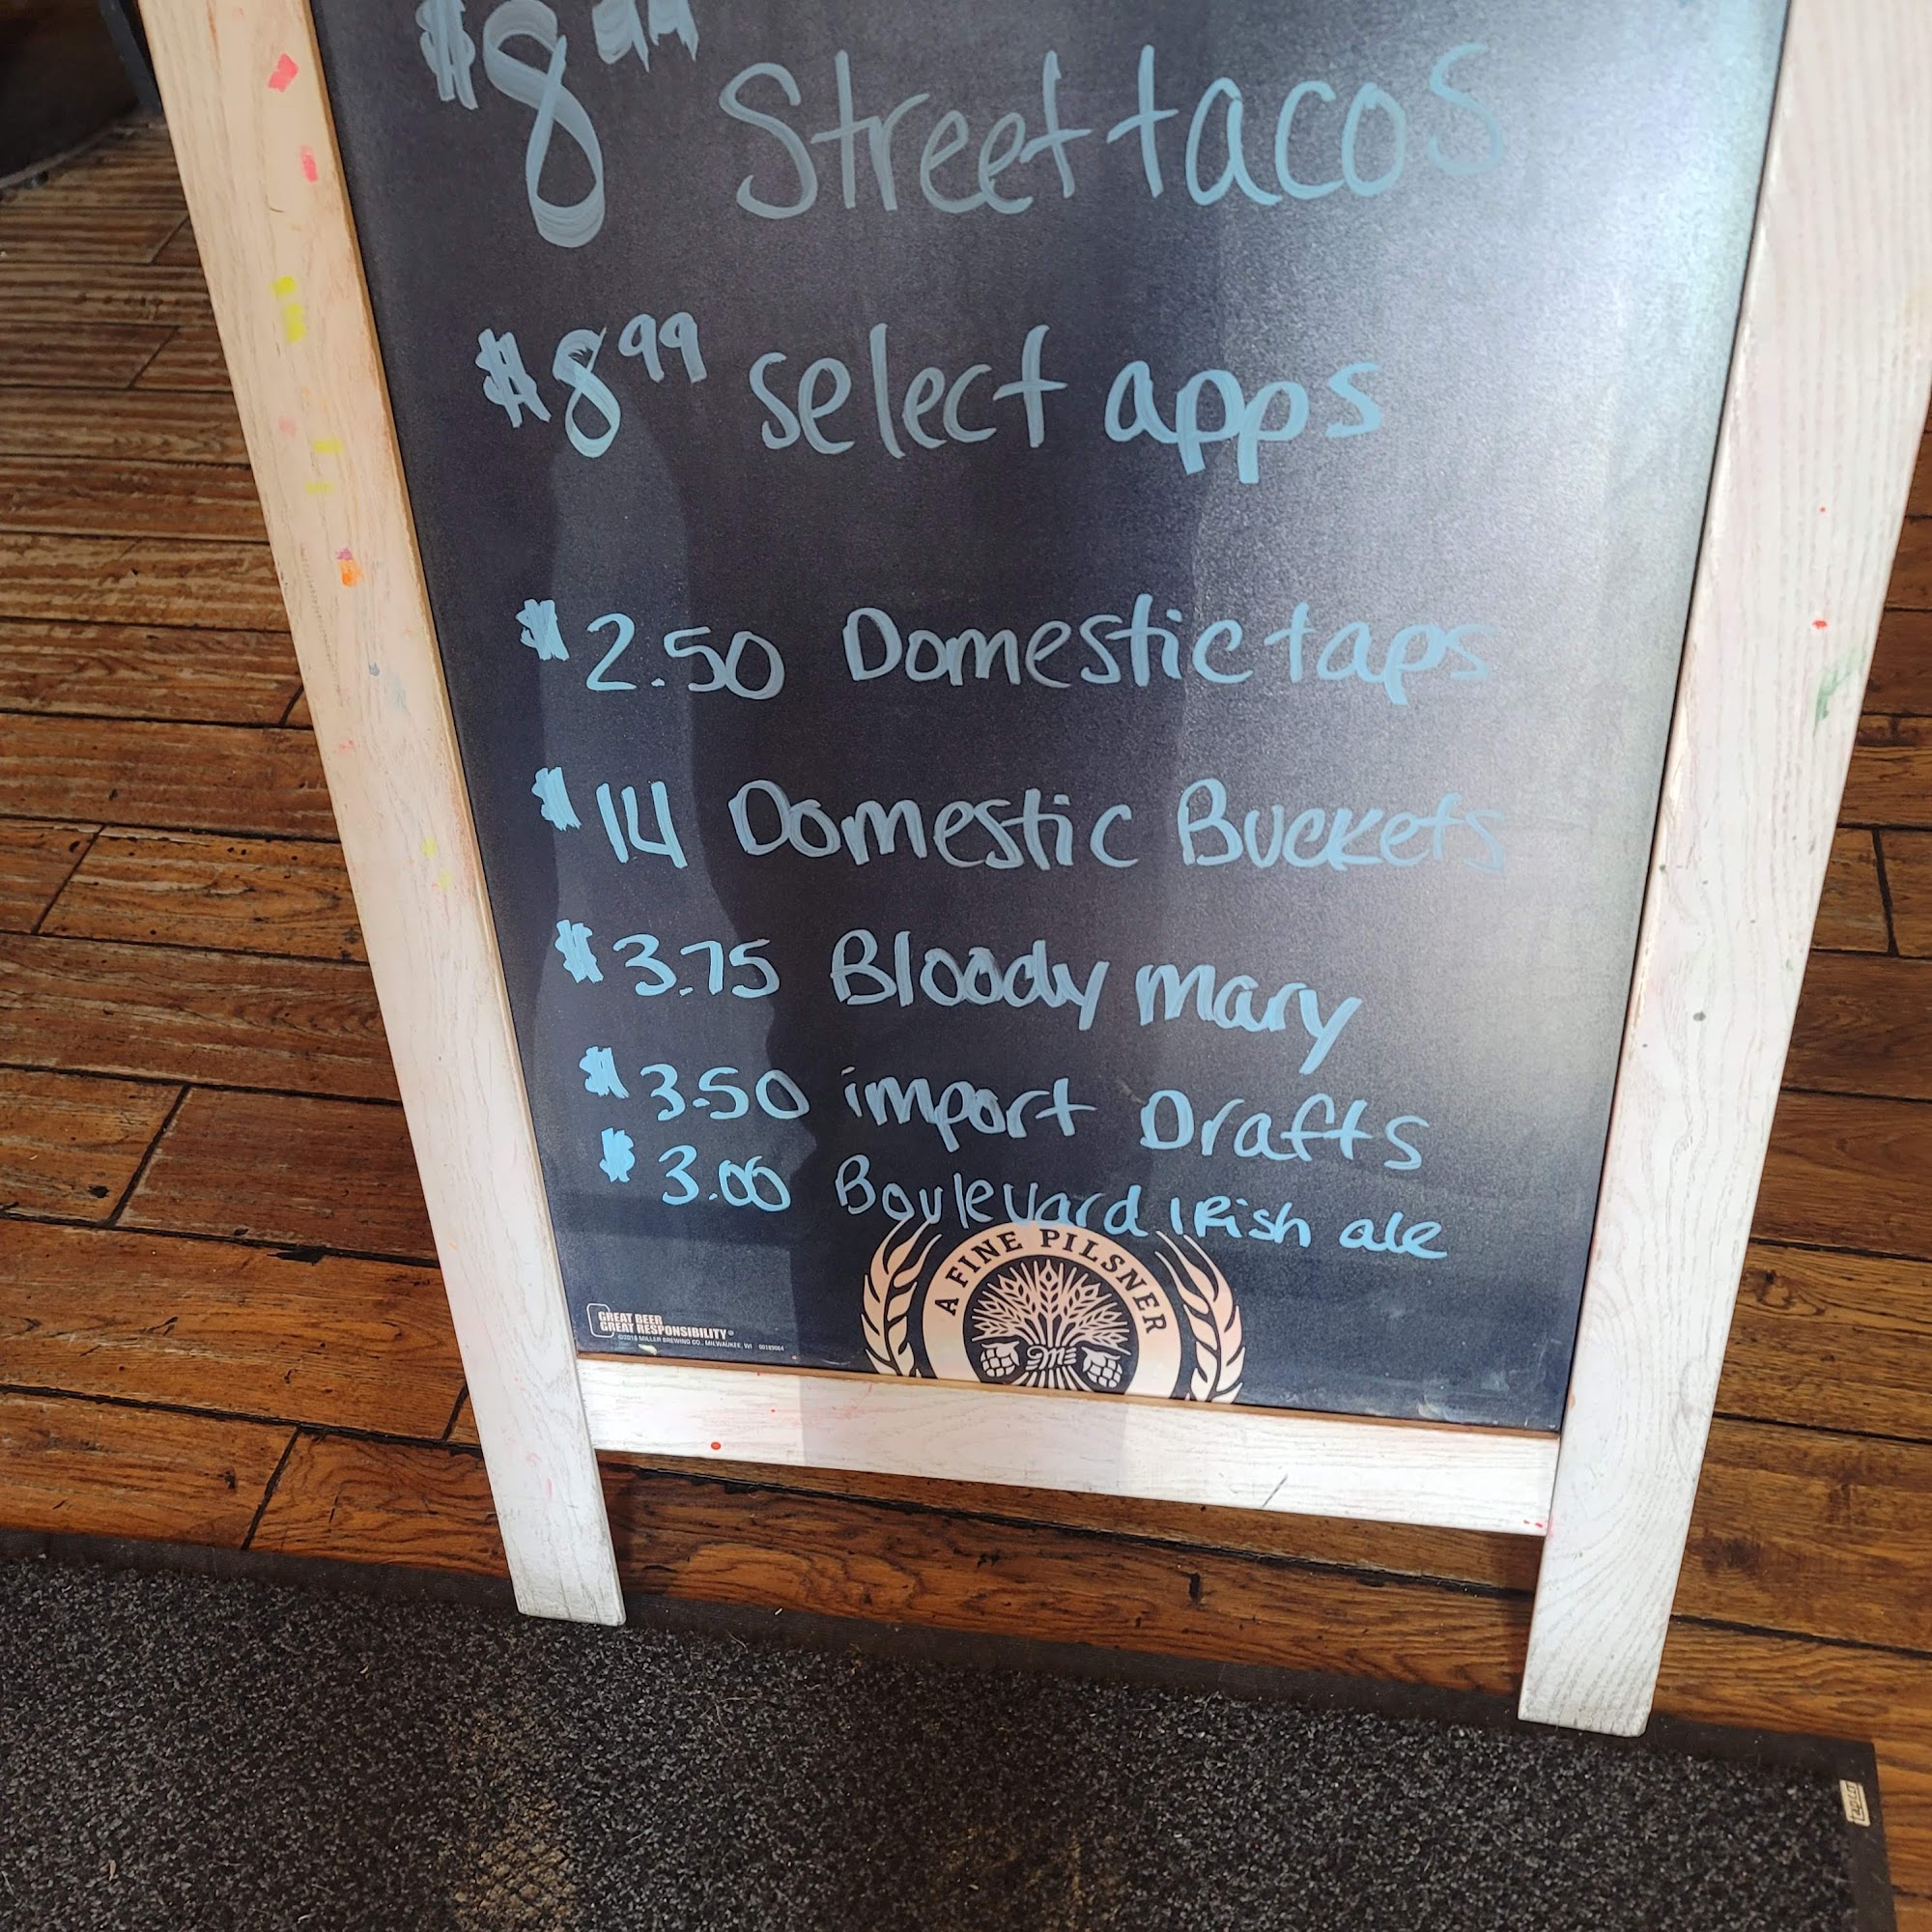 $8 Street tacos
$8.99 select apps
$2.50 Domestic taps
$14 Domestic Buckets
$3.75 Bloody Mary
$3.50 import Drafts
$3.00 Boulevard IRish ale
A FINE PILSNER
M
GREAT BEER
GREAT RESPONSIBILITY®
©2018 MILLER BREWING CO., MILWAUKEE, WI